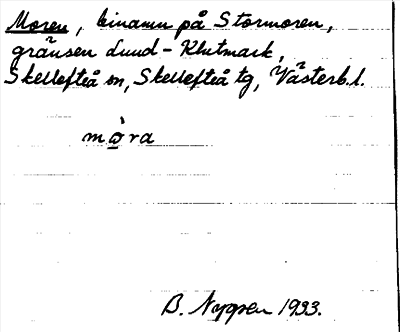 Moren, binamn på Stormoren,
gränsen Lund - Klutmark,
Skellefteå sn, Skellefteå tg, Västerb. l.
mò̲ra
B. Nygren 1933.